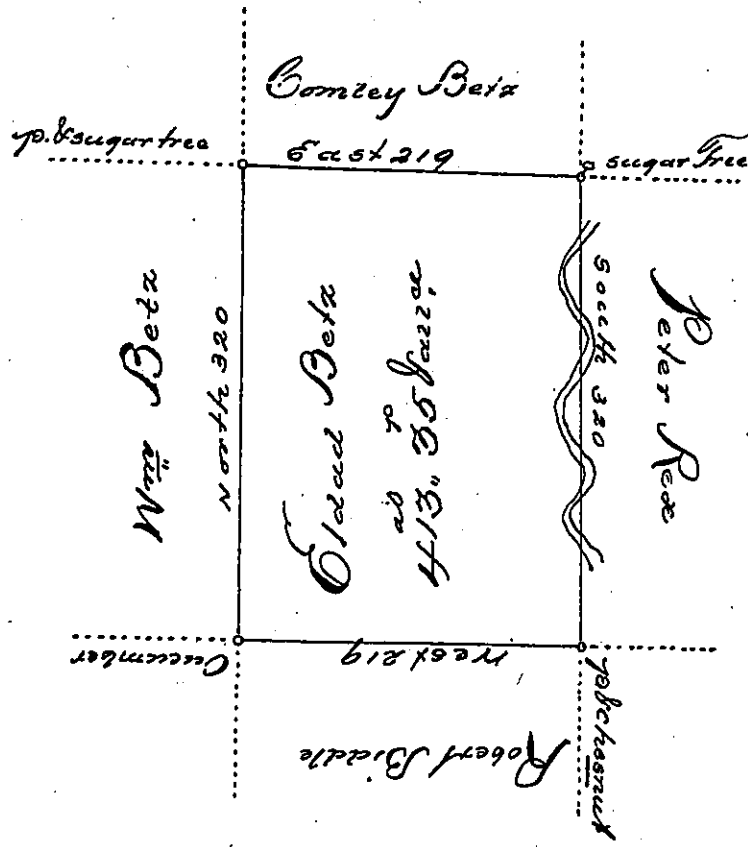 Comley Betz
p. & sugar tree
East 219
sugar Tree
Wm Betz
North 320
Eldad Betz
as ps
413,, 35 & allce
South 320
Peter Rex
Cucumber
West 219
Robert Biddle
p & chesnut